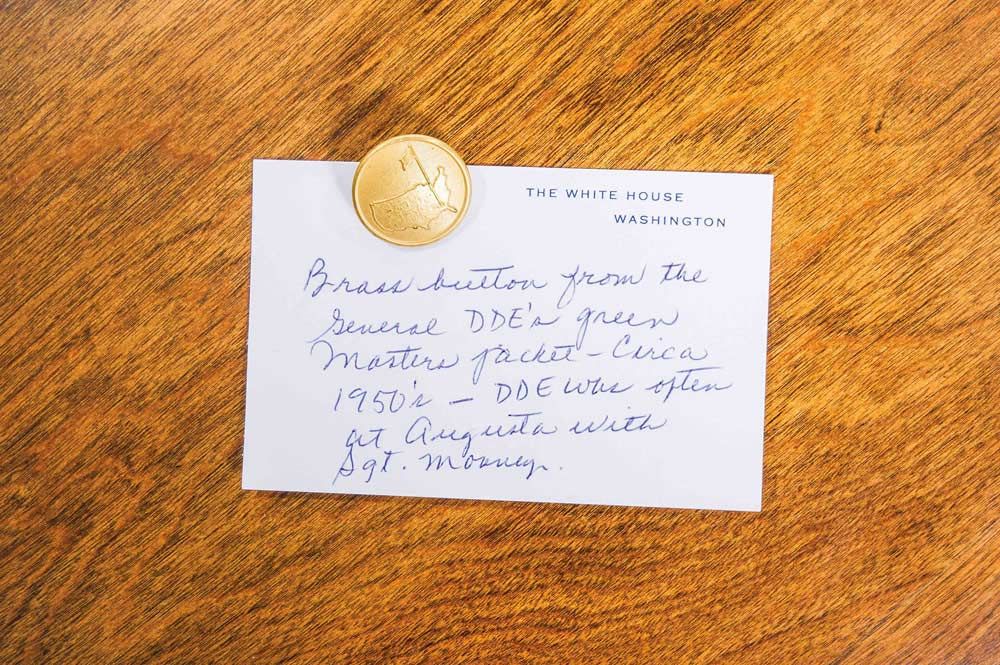 THE WHITE HOUSE
WASHINGTON
Brass button from the
General DDE's green
Masters jacket – Circa
1950's – DDE was often
at Augusta with
Sgt. Mooney.